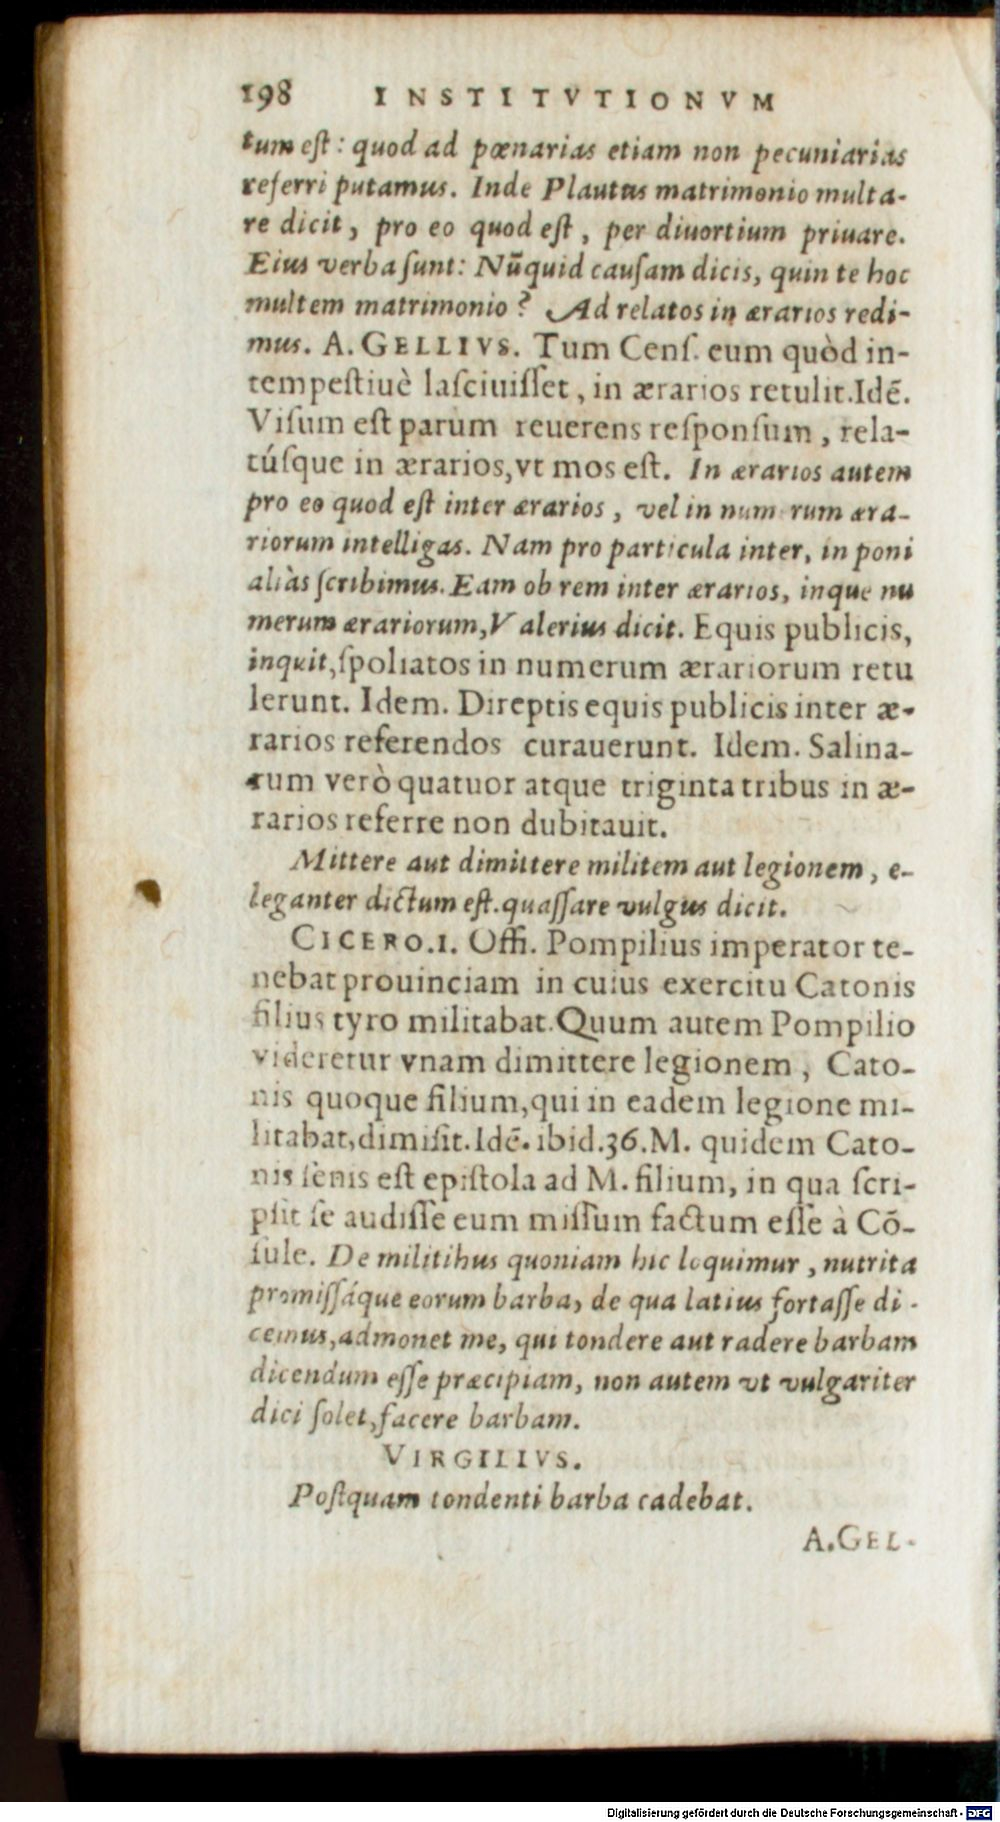 198 INSTITVTIONVM
tum eſt: quod ad pœnarias etiam non pecuniarias
referri putamus. Inde Plautus matrimonio multa-
re dicit, pro eo quod eſt, per diuortium priuare.
Eius verba ſunt: Nūquid cauſam dicis, quin te hoc
multem matrimonio? Ad relatos in ærarios redi-
mus. A. GELLIVS. Tum Cenſ. eum quòd in-
tempeſtiuè laſciuiſſet, in ærarios retulit. Idē.
Viſum eſt parum reuerens reſponſum, rela-
túſque in ærarios, vt mos eſt. In ærarios autem
pro eo quod eſt inter ærarios, vel in num rum æra-
riorum intelligas. Nam pro particula inter, in poni
aliàs ſcribimus. Eam ob rem inter ærarios, inque nu
merum ærariorum, Valerius dicit. Equis publicis,
inquit, ſpoliatos in numerum ærariorum retu
lerunt. Idem. Direptis equis publicis inter æ-
rarios referendos curauerunt. Idem. Salina-
rum verò quatuor atque triginta tribus in æ-
rarios referre non dubitauit.
Mittere aut dimittere militem aut legionem, e-
leganter dictum eſt. quaſſare vulgus dicit.
CICERO. I. Offi. Pompilius imperator te-
nebat prouinciam in cuius exercitu Catonis
filius tyro militabat. Quum autem Pompilio
videretur vnam dimittere legionem, Cato-
nis quoque filium, qui in eadem legione mi-
litabat, dimiſit. Idē. ibid. 36. M. quidem Cato-
nis ſenis eſt epiſtola ad M. filium, in qua ſcri-
pſit ſe audiſſe eum miſſum factum eſſe à Cō-
ſule. De militibus quoniam hic loquimur, nutrita
promiſſáque eorum barba, de qua latius fortaſſe di-
cemus, admonet me, qui tondere aut radere barbam
dicendum eſſe præcipiam, non autem vt vulgariter
dici ſolet, facere barbam.
VIRGILIVS.
Poſtquam tondenti barba cadebat.
A. GEL-
Digitalisierung gefördert durch die Deutsche Forschungsgemeinschaft - DFG